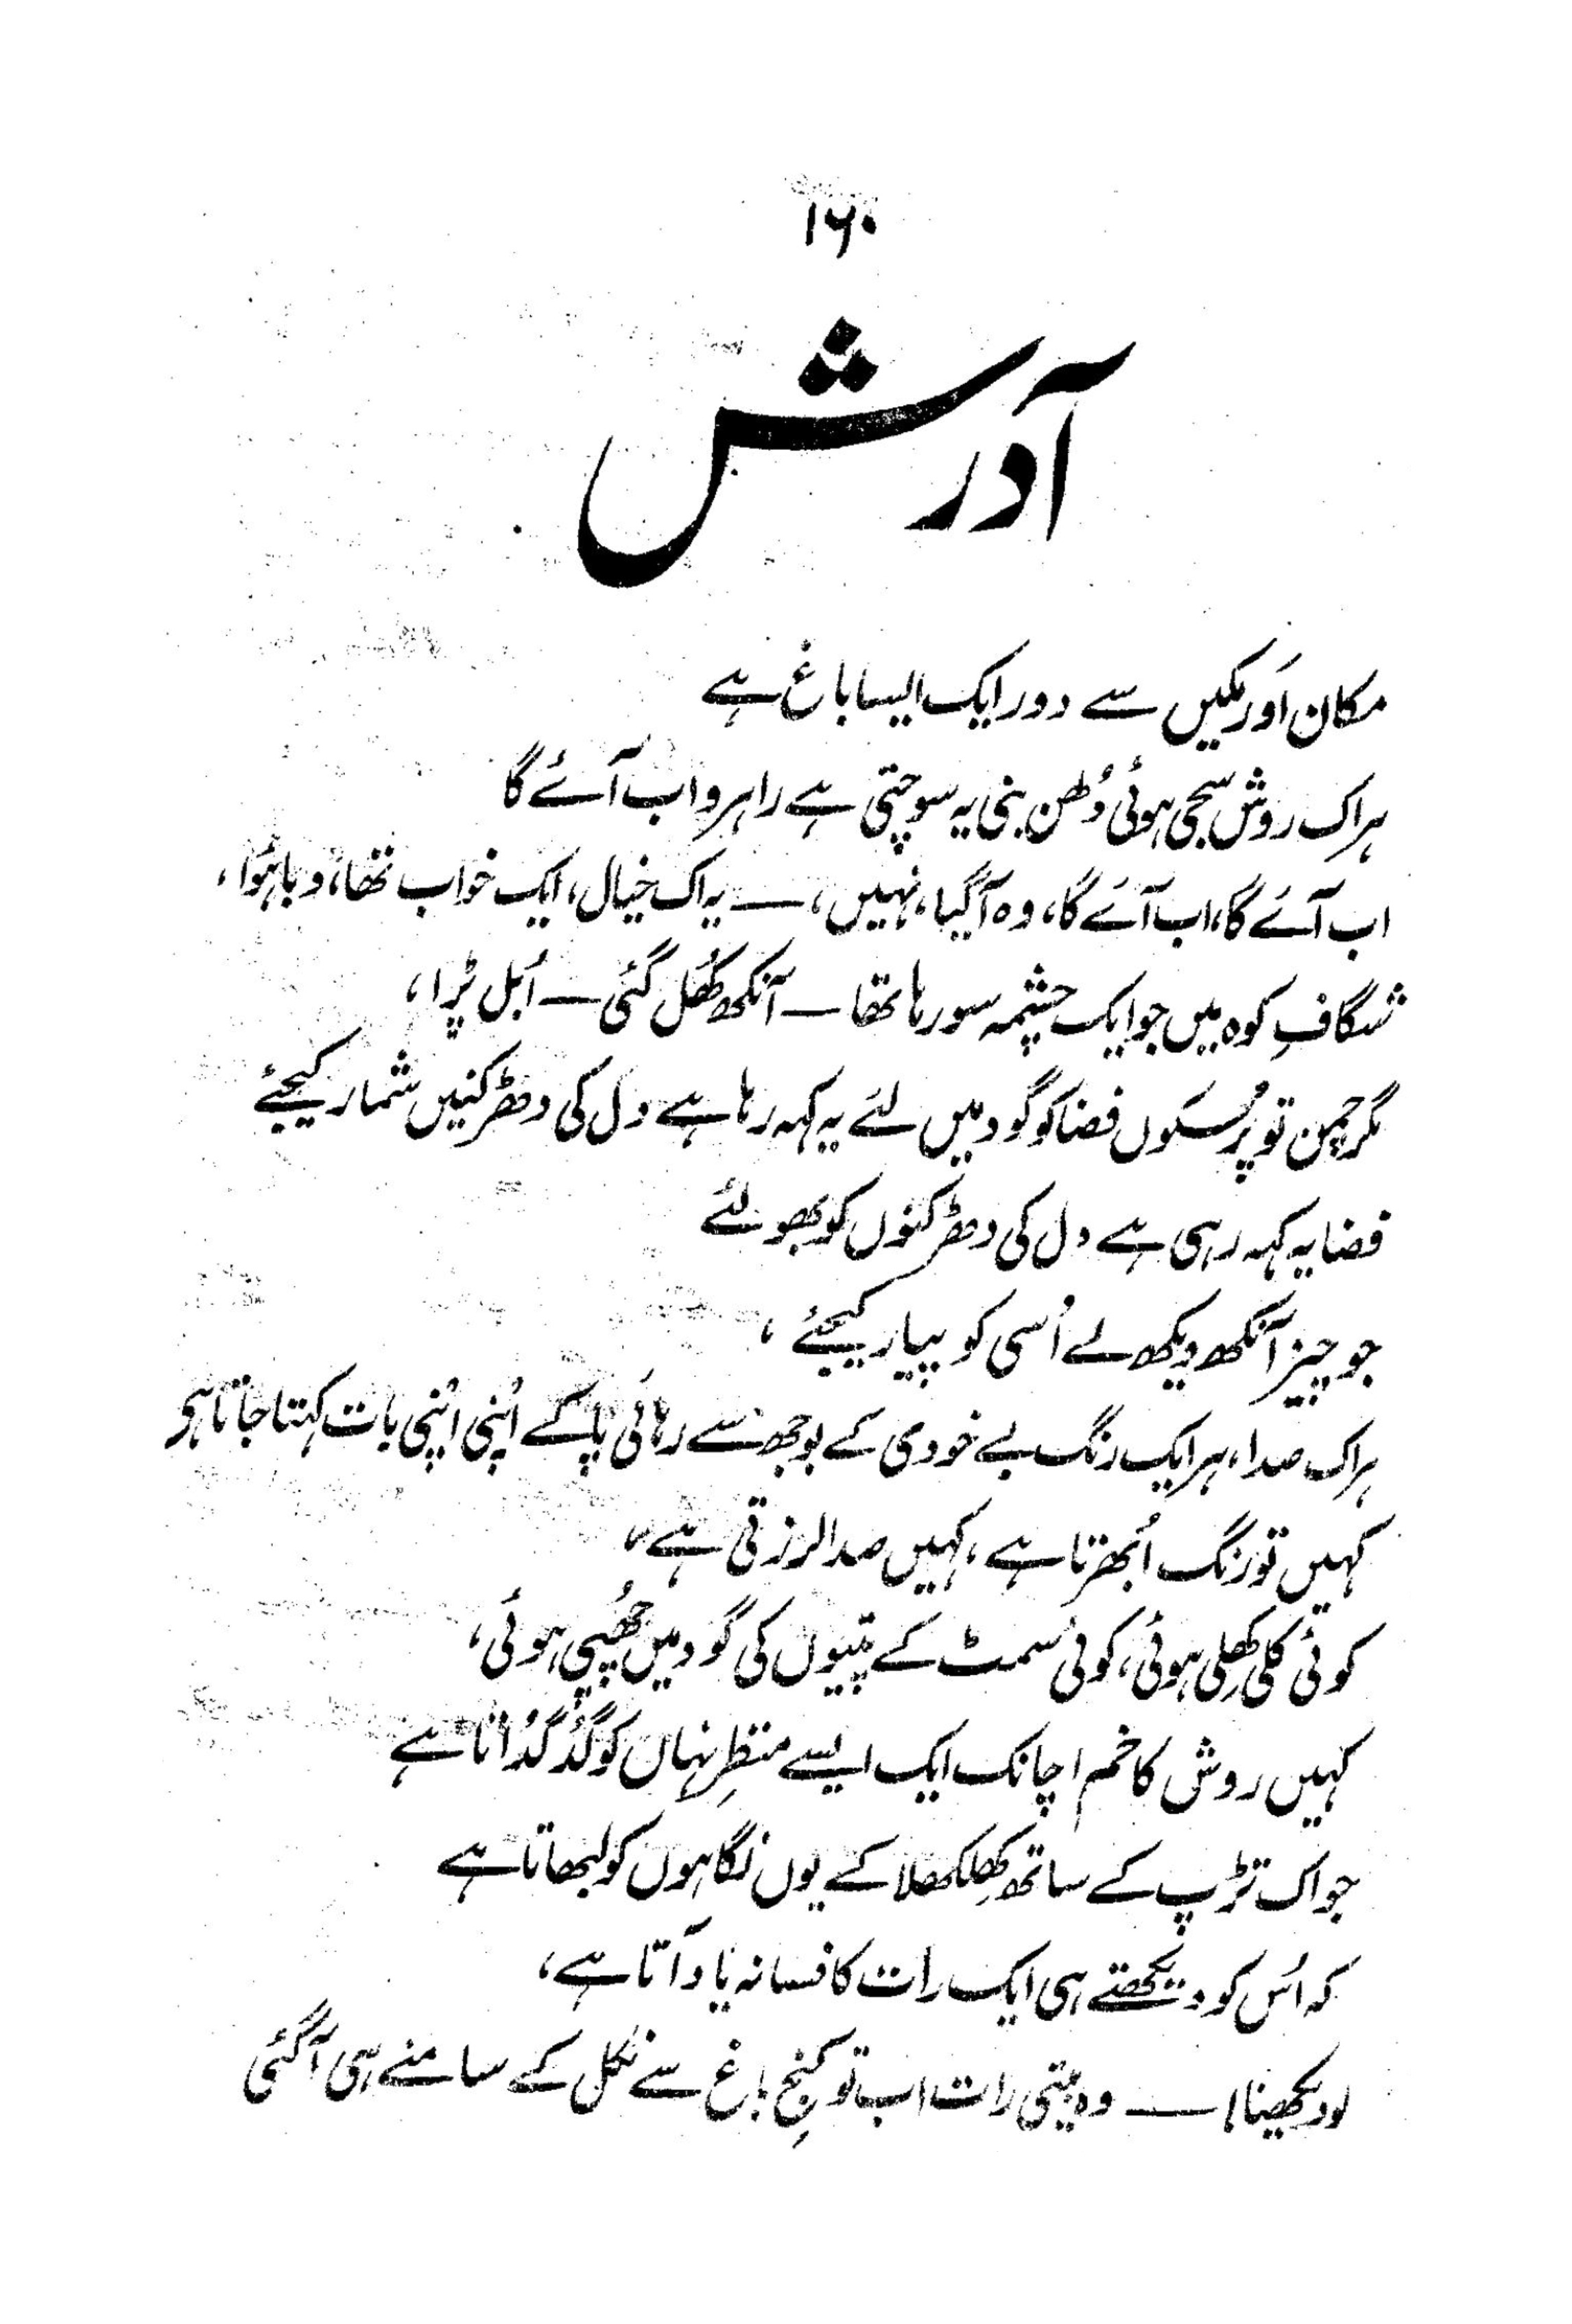 ۱۶۰
آدرش
مکان اَور مکیں سے دور ایک ایسا باغ ہے
ہر اک روش سجی ہوئی دُلھن بنی یہ سوچتی ہے راہرو اب آئے گا
اب آئے گا، اب آئے گا، وہ آ گیا، نہیں، — یہ اک خیال، ایک خواب تھا، دبا ہُوا،
شگافِ کوہ میں جو ایک چشمہ سو رہا تھا — آنکھ کھُل گئی — اُبل پڑا،
مگر چمن تو پُرسکوں فضا کو گود میں لئے یہ کہہ رہا ہے دل کی دھڑکنیں شمار کیجئے
فضا یہ کہہ رہی ہے دل کی دھڑکنوں کو بھولئے
جو چیز آنکھ دیکھ لے اُسی کو پیار کیجئے،
ہر اک صدا، ہر ایک رنگ بے خودی کے بوجھ سے رہائی پا کے اپنی اپنی بات کہتا جاتا ہی
کہیں تو رنگ اُبھرتا ہے، کہیں صدا لرزتی ہے،
کوئی کلی کھِلی ہوئی، کوئی سمٹ کے پتیوں کی گود میں چھُپی ہوئی،
کہیں روش کا خم اچانک ایک ایسے منظرِ نہاں کو گُدگُداتا ہے
جو اک تڑپ کے ساتھ کھِلکھلا کے یوں نگاہوں کو لبھاتا ہے
کہ اُس کو دیکھتے ہی ایک رات کا فسانہ یاد آتا ہے،
لو دیکھنا! — وہ بیتی رات اب تو کنجِ باغ سے نکل کے سامنے ہی آ گئی